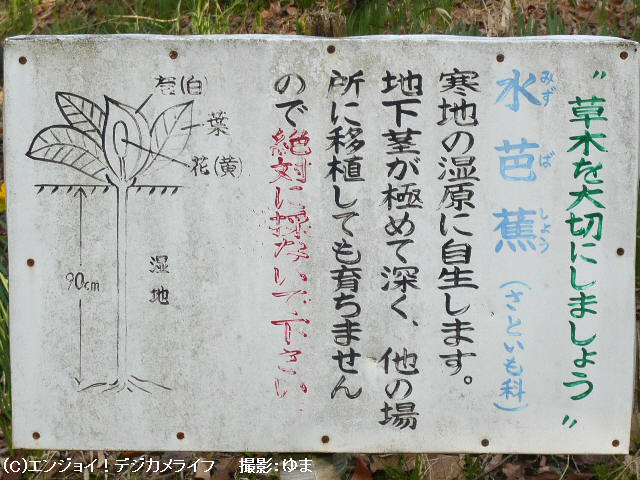 〝草木を大切にしましょう〟
水芭蕉(さといも科)
みず ば しょう
寒地の湿原に自生します。
地下茎が極めて深く、他の場
所に移植しても育ちません
ので絶対に採ないで下さい
苞(白)
葉
花(黄)
90cm
湿地
(C)エンジョイ!デジカメライフ 撮影:ゆま